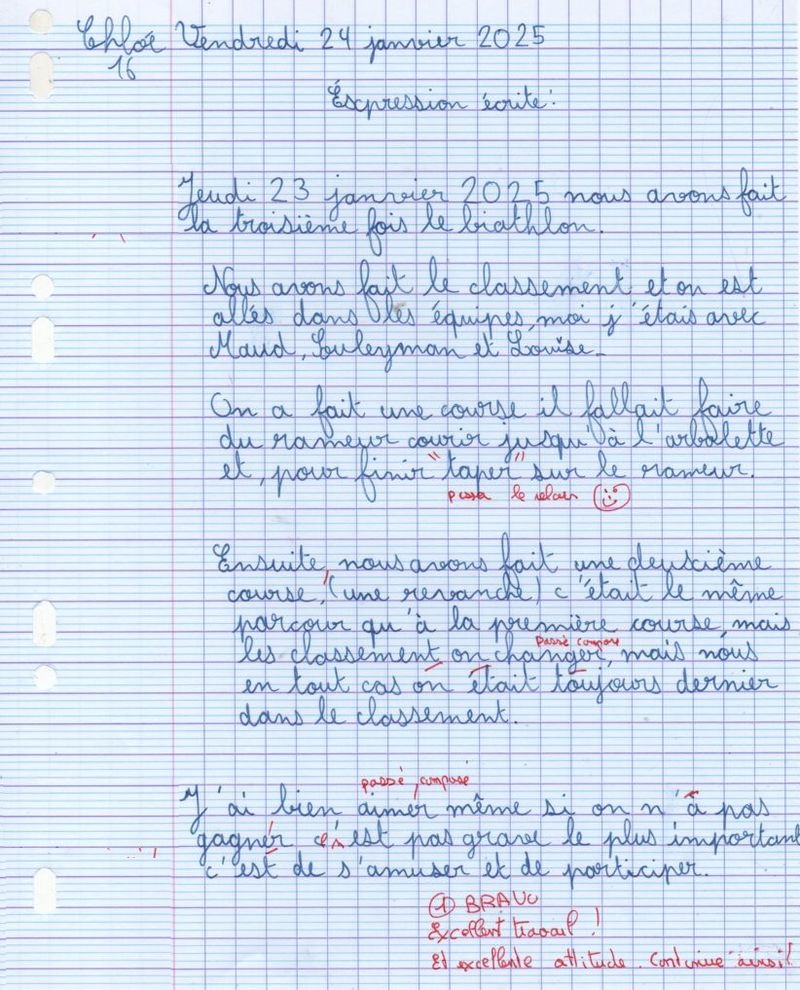 Chloé Vendredi 24 janvier 2025
16
Éxpression écrite:
Jeudi 23 janvier 2025 nous avons fait
la troisième fois le biathlon.
Nous avons fait le classement et on est
allés dans les équipes, moi j'étais avec
Maud, Souleyman et Louise.
On a fait une course il fallait faire
du rameur courir jusqu'à l'arbalette
et, pour finir "taper" sur le rameur.
passer le relais
Ensuite, nous avons fait une deuxième
course, (une revanche) c'était le même
parcour qu'à la première course, mais
passé composé
les classement on changer, mais nous
en tout cas on était toujours dernier
dans le classement.
passé composé
J'ai bien aimer même si on n'à pas
gagnér c'est pas grave le plus important
c'est de s'amuser et de participer.
1 BRAVO
Excellent travail !
Et excellente attitude. Continue ainsi!